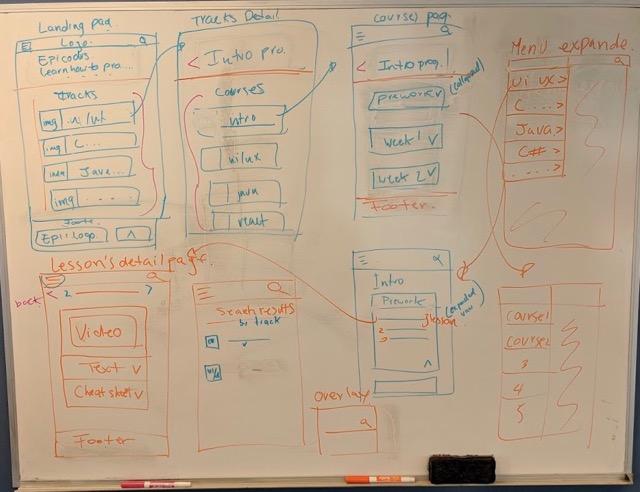 Landing pag
Logo
Epicodus
Learn how to pro....
Tracks
img ui/ux
img C...
img Java...
img .....
Footer
Epic logo ^
Tracks Detail
< Intro pro.
courses
intro
ui/ux
java
react
courses pag.
< Intro prog. 1
prework v
(collapsed)
week 1 v
week 2 v
Footer.
Menu expande.
ui ux >
C ... >
Java >
C# >
.... >
Lesson's detail page.
back < 2 >
Video
Text v
Cheat sheet v
Footer
Search results
by track
Intro
Prework
lesson
2
3
^
overlay
course 1
course 2
3
4
5